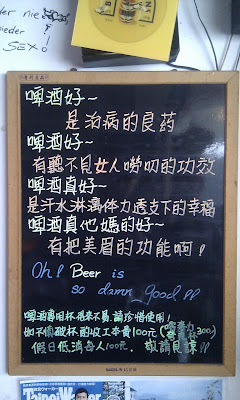 der nie
meder
SEX!
啤酒好~
是治病的良药
啤酒好~
有聽不見女人嘮叨的功效
啤酒真好~
是汗水淋漓体力透支下的幸福
啤酒真他媽的好~
有把美眉的功能啊!
Oh! Beer is
so damn good!!
啤酒專用杯得來不易,請珍惜使用!
如不慎破杯酌收工本費100元(
300)
假日低消每人100元. 敬請見諒!!